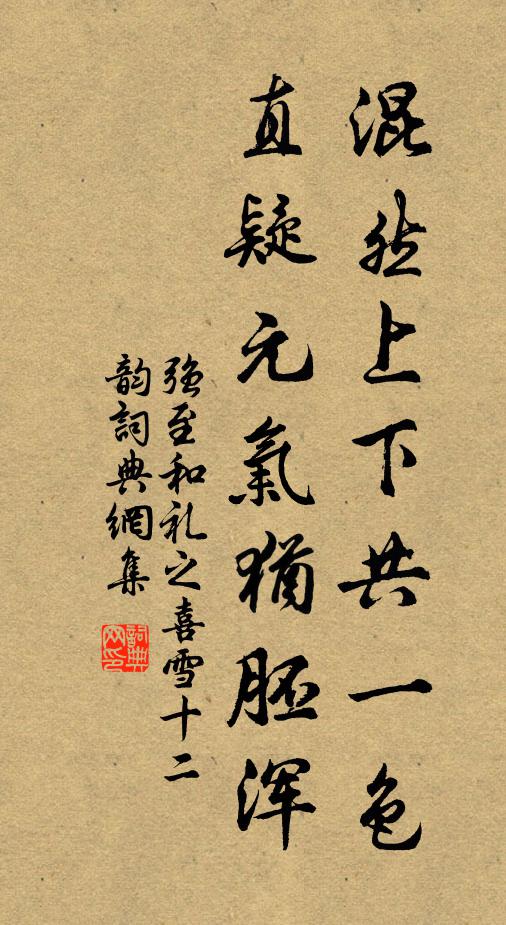 混然上下共一色
直疑元氣猶胚浑
强至和礼之喜雪十二
韵詞典網集
詞典
网印